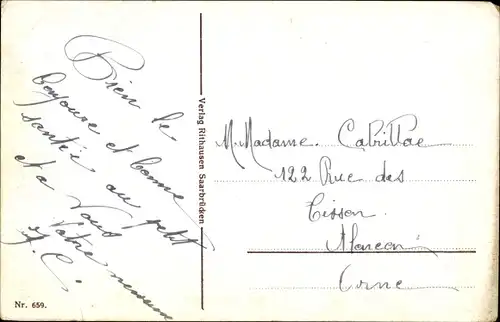 Bien le
bonjoure et bonne
santée au petit
et a Vous
Votre
Verlag Rithausen Saarbrücken
M. Madame. Cabrillac
122 Rue des
Tisson
Alancon
Orne
Nr. 659.